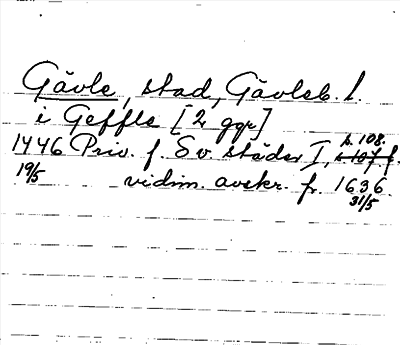 Gävle, stad, Gävleb. l.
i Geffle [2 ggr]
s. 108.
1446 Priv. f. Sv. städer I, s. 107 f.
19/5 vidim. avskr. fr. 1636
31/5